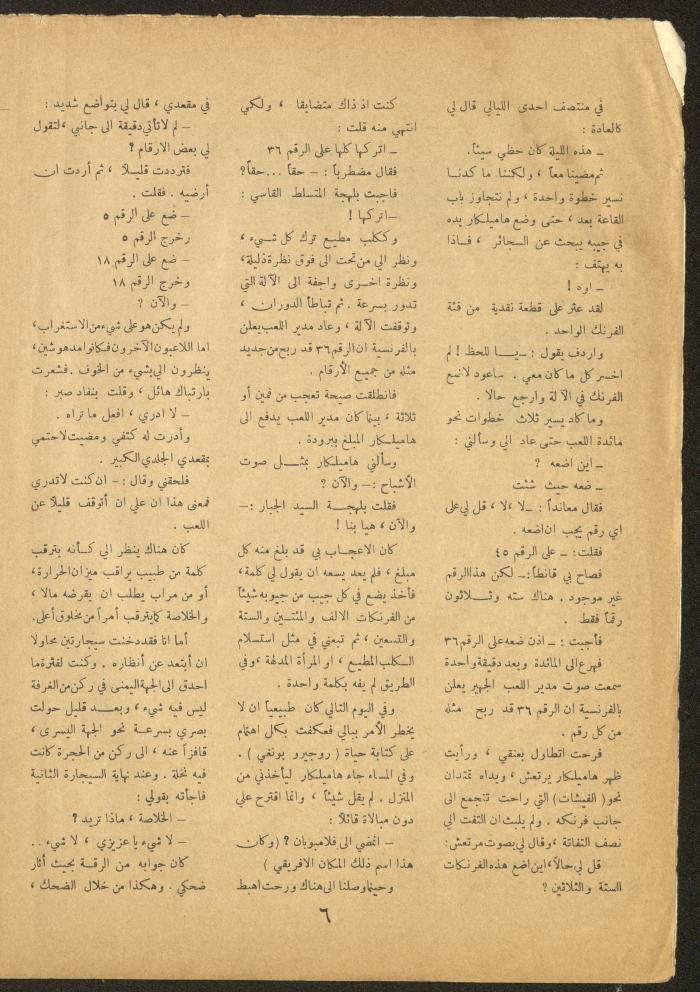 في منتصف احدى الليالي قال لي
كالعادة :
ـ هذه الليلة كان حظي سيئاً.
ثم مضينا معاً ، ولكننا ما كدنا
نسير خطوة واحدة ، ولم نتجاوز باب
القاعة بعد ، حتى وضع هاميلكار يده
في جيبه يبحث عن السجائر ، فاذا
به يهتف :
ـ اوه !
لقد عثر على قطعة نقدية من فئة
الفرنك الواحد .
واردف يقول : ـ يا للحظ ! لم
اخسر كل ما كان معي . ساعود لاضع
الفرنك في الآلة وارجع حالا .
وما كاد يسير ثلاث خطوات نحو
مائدة اللعب حتى عاد الي وسألني :
ـ اين اضعه ؟
ـ ضعه حيث شئت
فقال معانداً : ـ لا ، لا ، قل لي على
اي رقم يجب ان اضعه .
فقلت: ـ على الرقم ٤٥
فصاح بي قانطاً: ـ لكن هذا الرقم
غير موجود . هناك سته وثلاثون
رقماً فقط .
فأجبت : ـ اذن ضعه على الرقم ٣٦
فهرع الى المائدة وبعد دقيقة واحدة
سمعت صوت مدير اللعب الجهير يعلن
بالفرنسية ان الرقم ٣٦ قد ربح مثله
من كل رقم .
فرحت اتطاول بعنقي ، ورأيت
ظهر هاميلكار يرتعش ، ويداه تمتدان
نحو ( الفيشات ) التي راحت تتجمع الى
جانب فرنكه . ولم يلبث ان التفت الي
نصف التفاتة ، وقال لي بصوت مرتعش:
قل لي حالاً، اين اضع هذه الفرنكات
الستة والثلاثين ؟
كنت اذ ذاك متضايقا ، ولكي
انتهي منه قلت :
ـ اتركها كلها على الرقم ٣٦
فقال مضطرباً : ـ حقاً ... حقاً؟
فاجبت بلهجة المتسلط القاسي :
ـ اتركها !
وككلب مطيع ترك كل شيء ،
ونظر الي من تحت الى فوق نظرة ذليلة،
ونظرة اخرى واجفة الى الآلة التي
تدور بسرعة . ثم تباطأ الدوران ،
وتوقفت الآلة ، وعاد مدير اللعب يعلن
بالفرنسية ان الرقم ٣٦ قد ربح من جديد
مثله من جميع الأرقام .
فانطلقت صيحة تعجب من فمين أو
ثلاثة ، بينما كان مدير اللعب يدفع الى
هاميلكار المبلغ ببرودة .
وسألني هاميلكار بمثل صوت
الأشباح : ـ والآن ؟
فقلت بلهجة السيد الجبار : ـ
والآن ، هيا بنا !
كان الاعجاب بي قد بلغ منه كل
مبلغ ، فلم يعد يسعه ان يقول لي كلمة،
فأخذ يضع في كل جيب من جيوبه شيئاً
من الفرنكات الالف والمئتين والستة
والتسعين ، ثم تبعني في مثل استسلام
الكلب المطيع ، او المرأة المدلهة ، وفي
الطريق لم يفه بكلمة واحدة .
وفي اليوم التالي كان طبيعياً ان لا
يخطر الأمر ببالي فعكفت بكل اهتمام
على كتابة حياة ( روجيرو بونغي ) .
وفي المساء جاء هاميلكار ليأخذني من
المنزل . لم يقل شيئاً ، وانما اقترح علي
دون مبالاة قائلاً :
ـ انمضي الى فلامبويان ؟ (وكان
هذا اسم ذلك المكان الافريقي )
وحينما وصلنا الى هناك ورحت اهبط
في مقعدي ، قال لي بتواضع شديد :
ـ لم لا تأتي دقيقة الى جانبي ، لتقول
لي بعض الارقام ؟
فترددت قليلاً ، ثم أردت ان
أرضيه . فقلت .
ـ ضع على الرقم ٥
رخرج الرقم ٥
ـ ضع على الرقم ١٨
وخرج الرقم ١٨
ـ والآن ؟
ولم يكن هو على شيء من الاستغراب،
اما اللاعبون الآخرون فكانوا مدهوشين،
ينظرون الي بشيء من الخوف . فشعرت
بارتباك هائل ، وقلت بنفاد صبر :
ـ لا ادري ، افعل ما تراه .
وأدرت له كتفي ومضيت لاحتمي
بمقعدي الجلدي الكبير .
فلحقني وقال : ـ ان كنت لا تدري
فمعنى هذا ان علي ان أتوقف قليلاً عن
اللعب .
كان هناك ينظر الي كأنه يترقب
كلمة من طبيب يراقب ميزان الحرارة،
أو من مراب يطلب ان يقرضه مالا ،
والخلاصة كما يترقب أمراً من مخلوق أعلى.
أما انا فقد دخنت سيجارتين محاولا
ان أبتعد عن أنظاره . وكنت لفترة ما
احدق الى الجهة اليمنى في ركن من الغرفة
ليس فيه شيء ، وبعد قليل حولت
بصري بسرعة نحو الجهة اليسرى ،
قافزاً عنه ، الى ركن من الحجرة كانت
فيه نخلة . وعند نهاية السيجارة الثانية
فاجأته بقولي :
ـ الخلاصة ، ماذا تريد ؟
ـ لا شيء يا عزيزي ، لا شيء ..
كان جوابه من الرقة بحيث أثار
ضحكي . وهكذا من خلال الضحك ،
٦